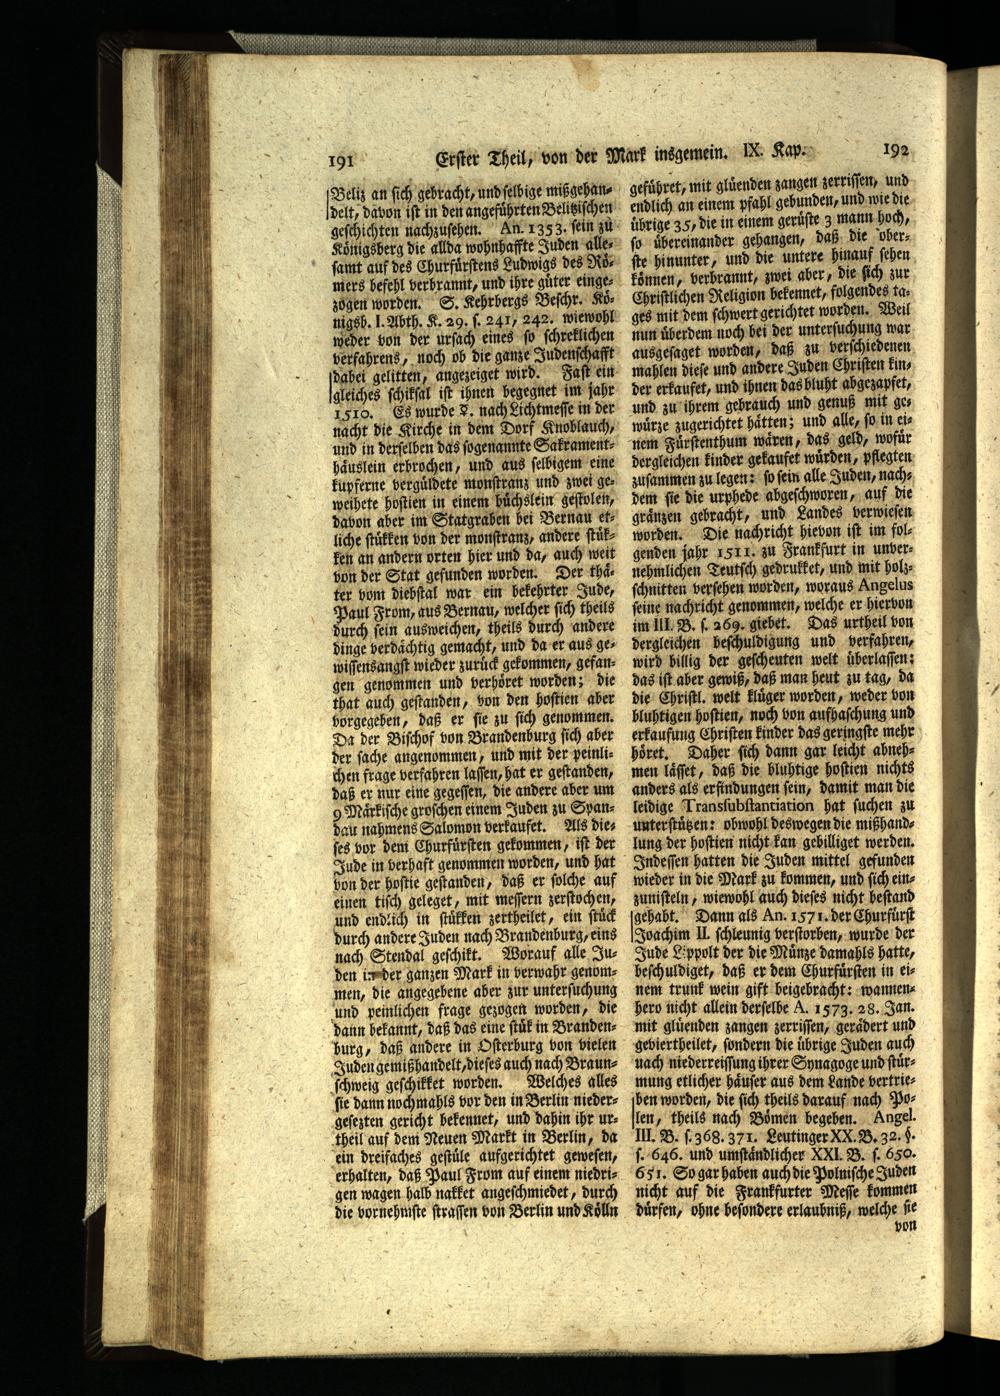 191
Erster Theil, von der Mark insgemein. IX. Kap.
192
Beliz an sich gebracht, und selbige mißgehan-
delt, davon ist in den angeführten Belitzischen
geschichten nachzusehen. An. 1353. sein zu
Königsberg die allda wohnhaffte Juden alle-
samt auf des Churfürstens Ludwigs des Rö-
mers befehl verbrannt, und ihre güter einge-
zogen worden. S. Kehrbergs Beschr. Kö-
nigsb. I. Abth. K. 29. s. 241, 242. wiewohl
weder von der ursach eines so schreklichen
verfahrens, noch ob die ganze Judenschafft
dabei gelitten, angezeiget wird. Fast ein
gleiches schiksal ist ihnen begegnet im jahr
1510. Es wurde D. nach Lichtmesse in der
nacht die Kirche in dem Dorf Knoblauch,
und in derselben das sogenannte Sakrament-
häuslein erbrochen, und aus selbigem eine
kupferne vergüldete monstranz und zwei ge-
weihete hostien in einem büchslein gestolen,
davon aber im Statgraben bei Bernau et-
liche stükken von der monstranz, andere stük-
ken an andern orten hier und da, auch weit
von der Stat gefunden worden. Der thä-
ter vom diebstal war ein bekehrter Jude,
Paul From, aus Bernau, welcher sich theils
durch sein ausweichen, theils durch andere
dinge verdächtig gemacht, und da er aus ge-
wissensangst wieder zurück gekommen, gefan-
gen genommen und verhöret worden; die
that auch gestanden, von den hostien aber
vorgegeben, daß er sie zu sich genommen.
Da der Bischof von Brandenburg sich aber
der sache angenommen, und mit der peinli-
chen frage verfahren lassen, hat er gestanden,
daß er nur eine gegessen, die andere aber um
9 Märkische groschen einem Juden zu Span-
dau nahmens Salomon verkaufet. Als die-
ses vor dem Churfürsten gekommen, ist der
Jude in verhaft genommen worden, und hat
von der hostie gestanden, daß er solche auf
einen tisch geleget, mit messern zerstochen,
und endlich in stükken zertheilet, ein stück
durch andere Juden nach Brandenburg, eins
nach Stendal geschikt. Worauf alle Ju-
den in der ganzen Mark in verwahr genom-
men, die angegebene aber zur untersuchung
und peinlichen frage gezogen worden, die
dann bekannt, daß das eine stük in Branden-
burg, daß andere in Osterburg von vielen
Juden gemißhandelt, dieses auch nach Braun-
schweig geschikket worden. Welches alles
sie dann nochmahls vor den in Berlin nieder-
gesezten gericht bekennet, und dahin ihr ur-
theil auf dem Neuen Markt in Berlin, da
ein dreifaches gestüle aufgerichtet gewesen,
erhalten, daß Paul From auf einem niedri-
gen wagen halb nakket angeschmiedet, durch
die vornehmste strassen von Berlin und Kölln
geführet, mit glüenden zangen zerrissen, und
endlich an einem pfahl gebunden, und wie die
übrige 35, die in einem gerüste 3 mann hoch,
so übereinander gehangen, daß die ober-
ste hinunter, und die untere hinauf sehen
können, verbrannt, zwei aber, die sich zur
Christlichen Religion bekennet, folgendes ta-
ges mit dem schwert gerichtet worden. Weil
nun überdem noch bei der untersuchung war
ausgesaget worden, daß zu verschiedenen
mahlen diese und andere Juden Christen kin-
der erkaufet, und ihnen das bluht abgezapfet,
und zu ihrem gebrauch und genuß mit ge-
würze zugerichtet hätten; und alle, so in ei-
nem Fürstenthum wären, das geld, wofür
dergleichen kinder gekaufet würden, pflegten
zusammen zu legen: so sein alle Juden, nach-
dem sie die urphede abgeschworen, auf die
gränzen gebracht, und Landes verwiesen
worden. Die nachricht hievon ist im fol-
genden jahr 1511. zu Frankfurt in unver-
nehmlichen Teutsch gedrukket, und mit holz-
schnitten versehen worden, woraus Angelus
seine nachricht genommen, welche er hiervon
im III. B. s. 269. giebet. Das urtheil von
dergleichen beschuldigung und verfahren,
wird billig der gescheuten welt überlassen:
das ist aber gewiß, daß man heut zu tag, da
die Christl. welt klüger worden, weder von
bluhtigen hostien, noch von aufhaschung und
erkaufung Christen kinder das geringste mehr
höret. Daher sich dann gar leicht abneh-
men lässet, daß die bluhtige hostien nichts
anders als erfindungen sein, damit man die
leidige Transsubstantiation hat suchen zu
unterstützen: obwohl deswegen die mißhand-
lung der hostien nicht kan gebilliget werden.
Indessen hatten die Juden mittel gefunden
wieder in die Mark zu kommen, und sich ein-
zunisteln, wiewohl auch dieses nicht bestand
gehabt. Dann als An. 1571. der Churfürst
Joachim II. schleunig verstorben, wurde der
Jude Lippolt der die Münze damahls hatte,
beschuldiget, daß er dem Churfürsten in ei-
nem trunk wein gift beigebracht: wannen-
hero nicht allein derselbe A. 1573. 28. Jan.
mit glüenden zangen zerrissen, gerädert und
geviertheilet, sondern die übrige Juden auch
nach niederreissung ihrer Synagoge und stür-
mung etlicher häuser aus dem Lande vertrie-
ben worden, die sich theils darauf nach Po-
len, theils nach Bömen begeben. Angel.
III. B. s. 368. 371. Leutinger XX. B. 32. §.
s. 646. und umständlicher XXI. B. s. 650.
651. So gar haben auch die Polnische Juden
nicht auf die Frankfurter Messe kommen
dürfen, ohne besondere erlaubniß, welche sie
von